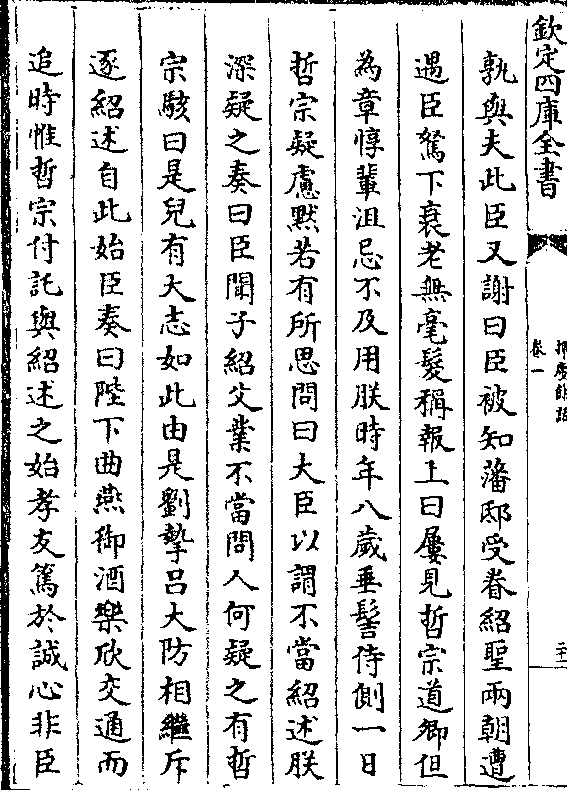 欽定四庫全書
揮麈餘話
卷一
孰與夫此臣又謝曰臣被知藩邸受眷紹聖兩朝遭
遇臣駑下衰老無毫髮稱報上曰屢見哲宗道卿但
為章惇輩沮忌不及用朕時年八歲垂髫侍側一日
哲宗疑慮默若有所思問曰大臣以謂不當紹述朕
深疑之奏曰臣聞子紹父業不當問人何疑之有哲
宗駭曰是兒有大志如此由是劉摯吕大防相繼斥
逐紹述自此始臣奏曰陛下曲燕御酒樂欣交通而
追時惟哲宗付託與紹述之始孝友篤於誠心非臣